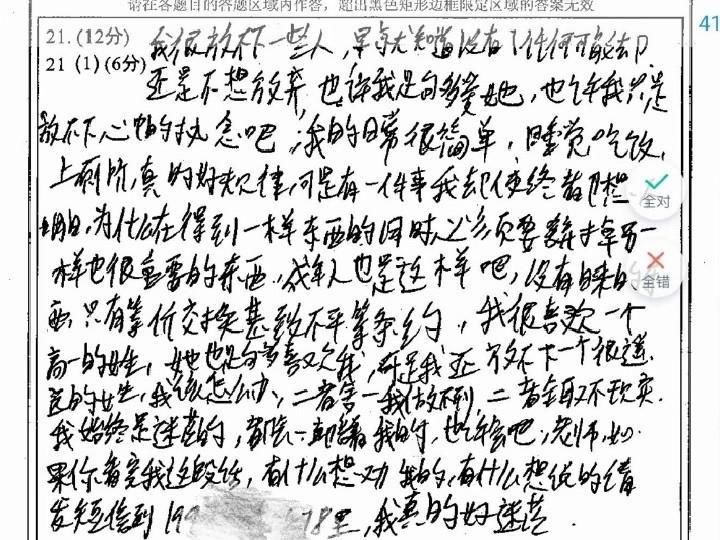 请在各题目的答题区域内作答，超出黑色矩形边框限定区域的答案无效
41
21. (12分) 我很放不下一些人，早点尤知道没有任何可能却
21 (1)(6分) 还是不想放弃，也许我是多爱她，也许我只是
放不下心中的执念吧，我的日常很简单，睡觉吃饭，
上厕所，真的好规律，可是有一件事我却使终都想
明白，为什么在得到一样东西的同时必须要弃掉另一
全对
样也很重要的东西，成年人也是这样吧，没有白来的
全错
只有等价交换甚致不平等条约，我很喜欢一个
高一的女生，她也是多喜欢我，可是我还放不下一个很遥
远的女生，我该怎么办，二者舍一我做不到二者全取不现实
我始终是迷茫的，都会一直我的，也许会吧，老师，如
果你看完我这段话，有什么想劝我的，有什么想说的请
发短信到 199 78里，我真的好迷茫.